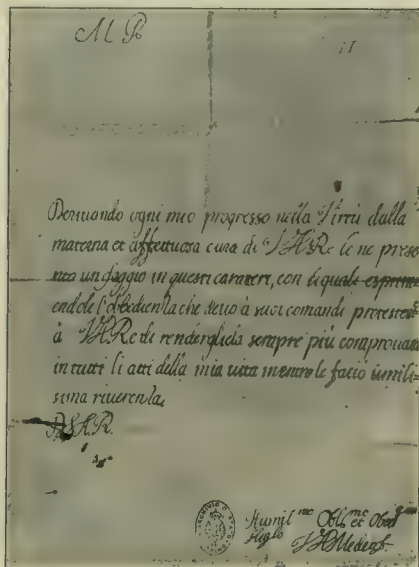 Deriuando ogni mio progresso nella Virtù dalla
materna et affettuosa cura di V.A.Re le ne prese
nto un saggio in questi caratteri, con le quale esprim
endole l'obbedienza che deuo à suoi comandi protester
à V.A.Re di rendergliela sempre più comprouata
in tutti li atti della mia uita mentre le faccio umilis=
sima riuerenza,
D.V.A.R.
Humil.mo Obl.mo et Obed.
figlio